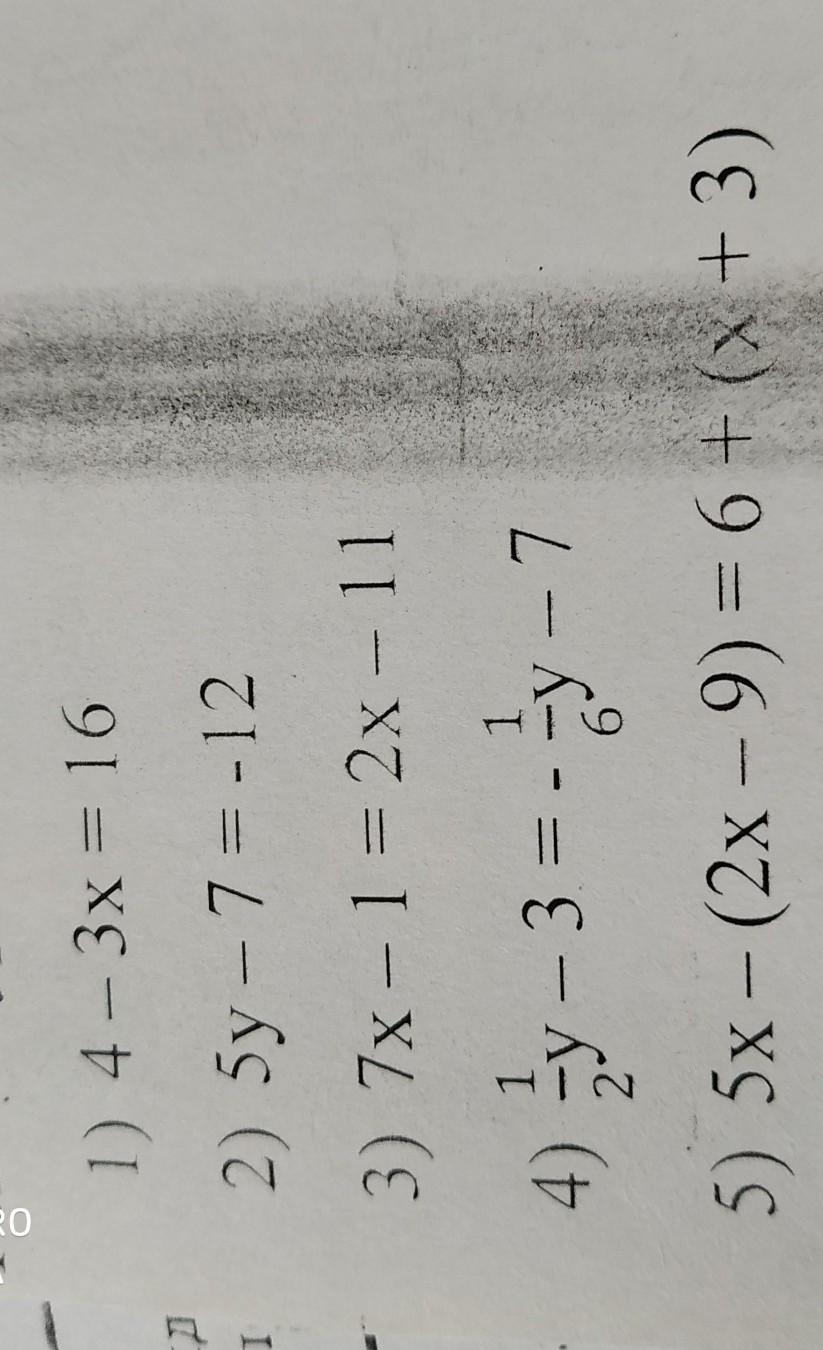 1) 4 – 3x = 16
2) 5y – 7 = -12
3) 7x – 1 = 2x – 11
4) 1/2y – 3 = - 1/6y – 7
5) 5x – (2x – 9) = 6 + (x + 3)
RO